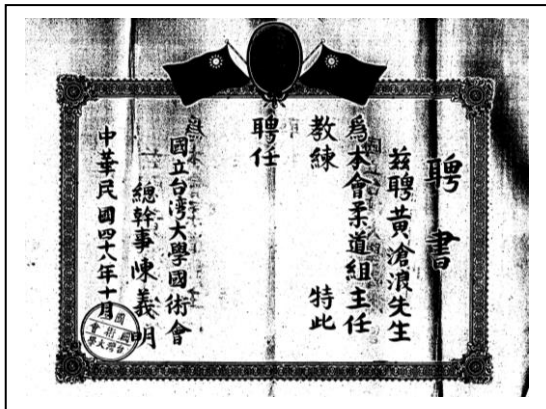 聘書
茲聘黃滄浪先生
為本會柔道組主任
教練 特此
聘任
國立台湾大學國術會
總幹事陳義明
中華民國四十八年十月